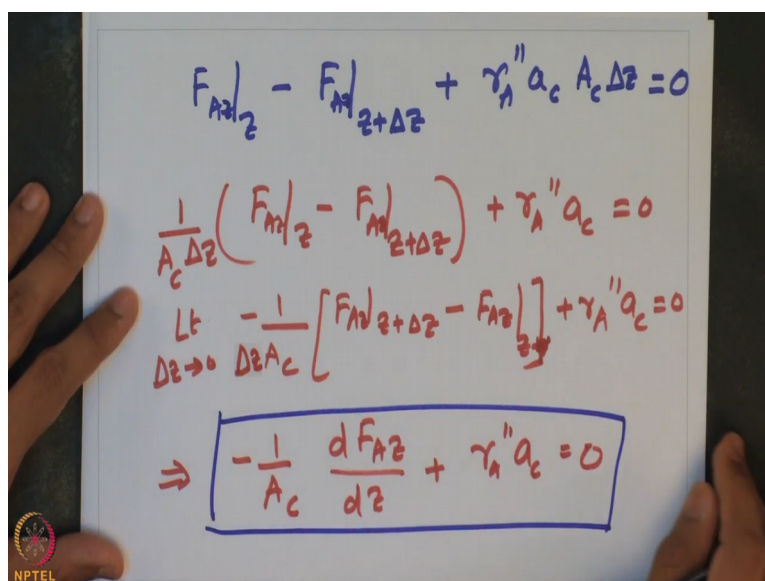 F_{Az}|_z - F_{Az}|_{z+Δz} + r_A'' a_c A_c Δz = 0
1/(A_c Δz) (F_{Az}|_z - F_{Az}|_{z+Δz}) + r_A'' a_c = 0
Lt_{Δz→0} -1/(Δz A_c) [F_{Az}|_{z+Δz} - F_{Az}|_z] + r_A'' a_c = 0
⇒ -1/A_c dF_{Az}/dz + r_A'' a_c = 0
NPTEL